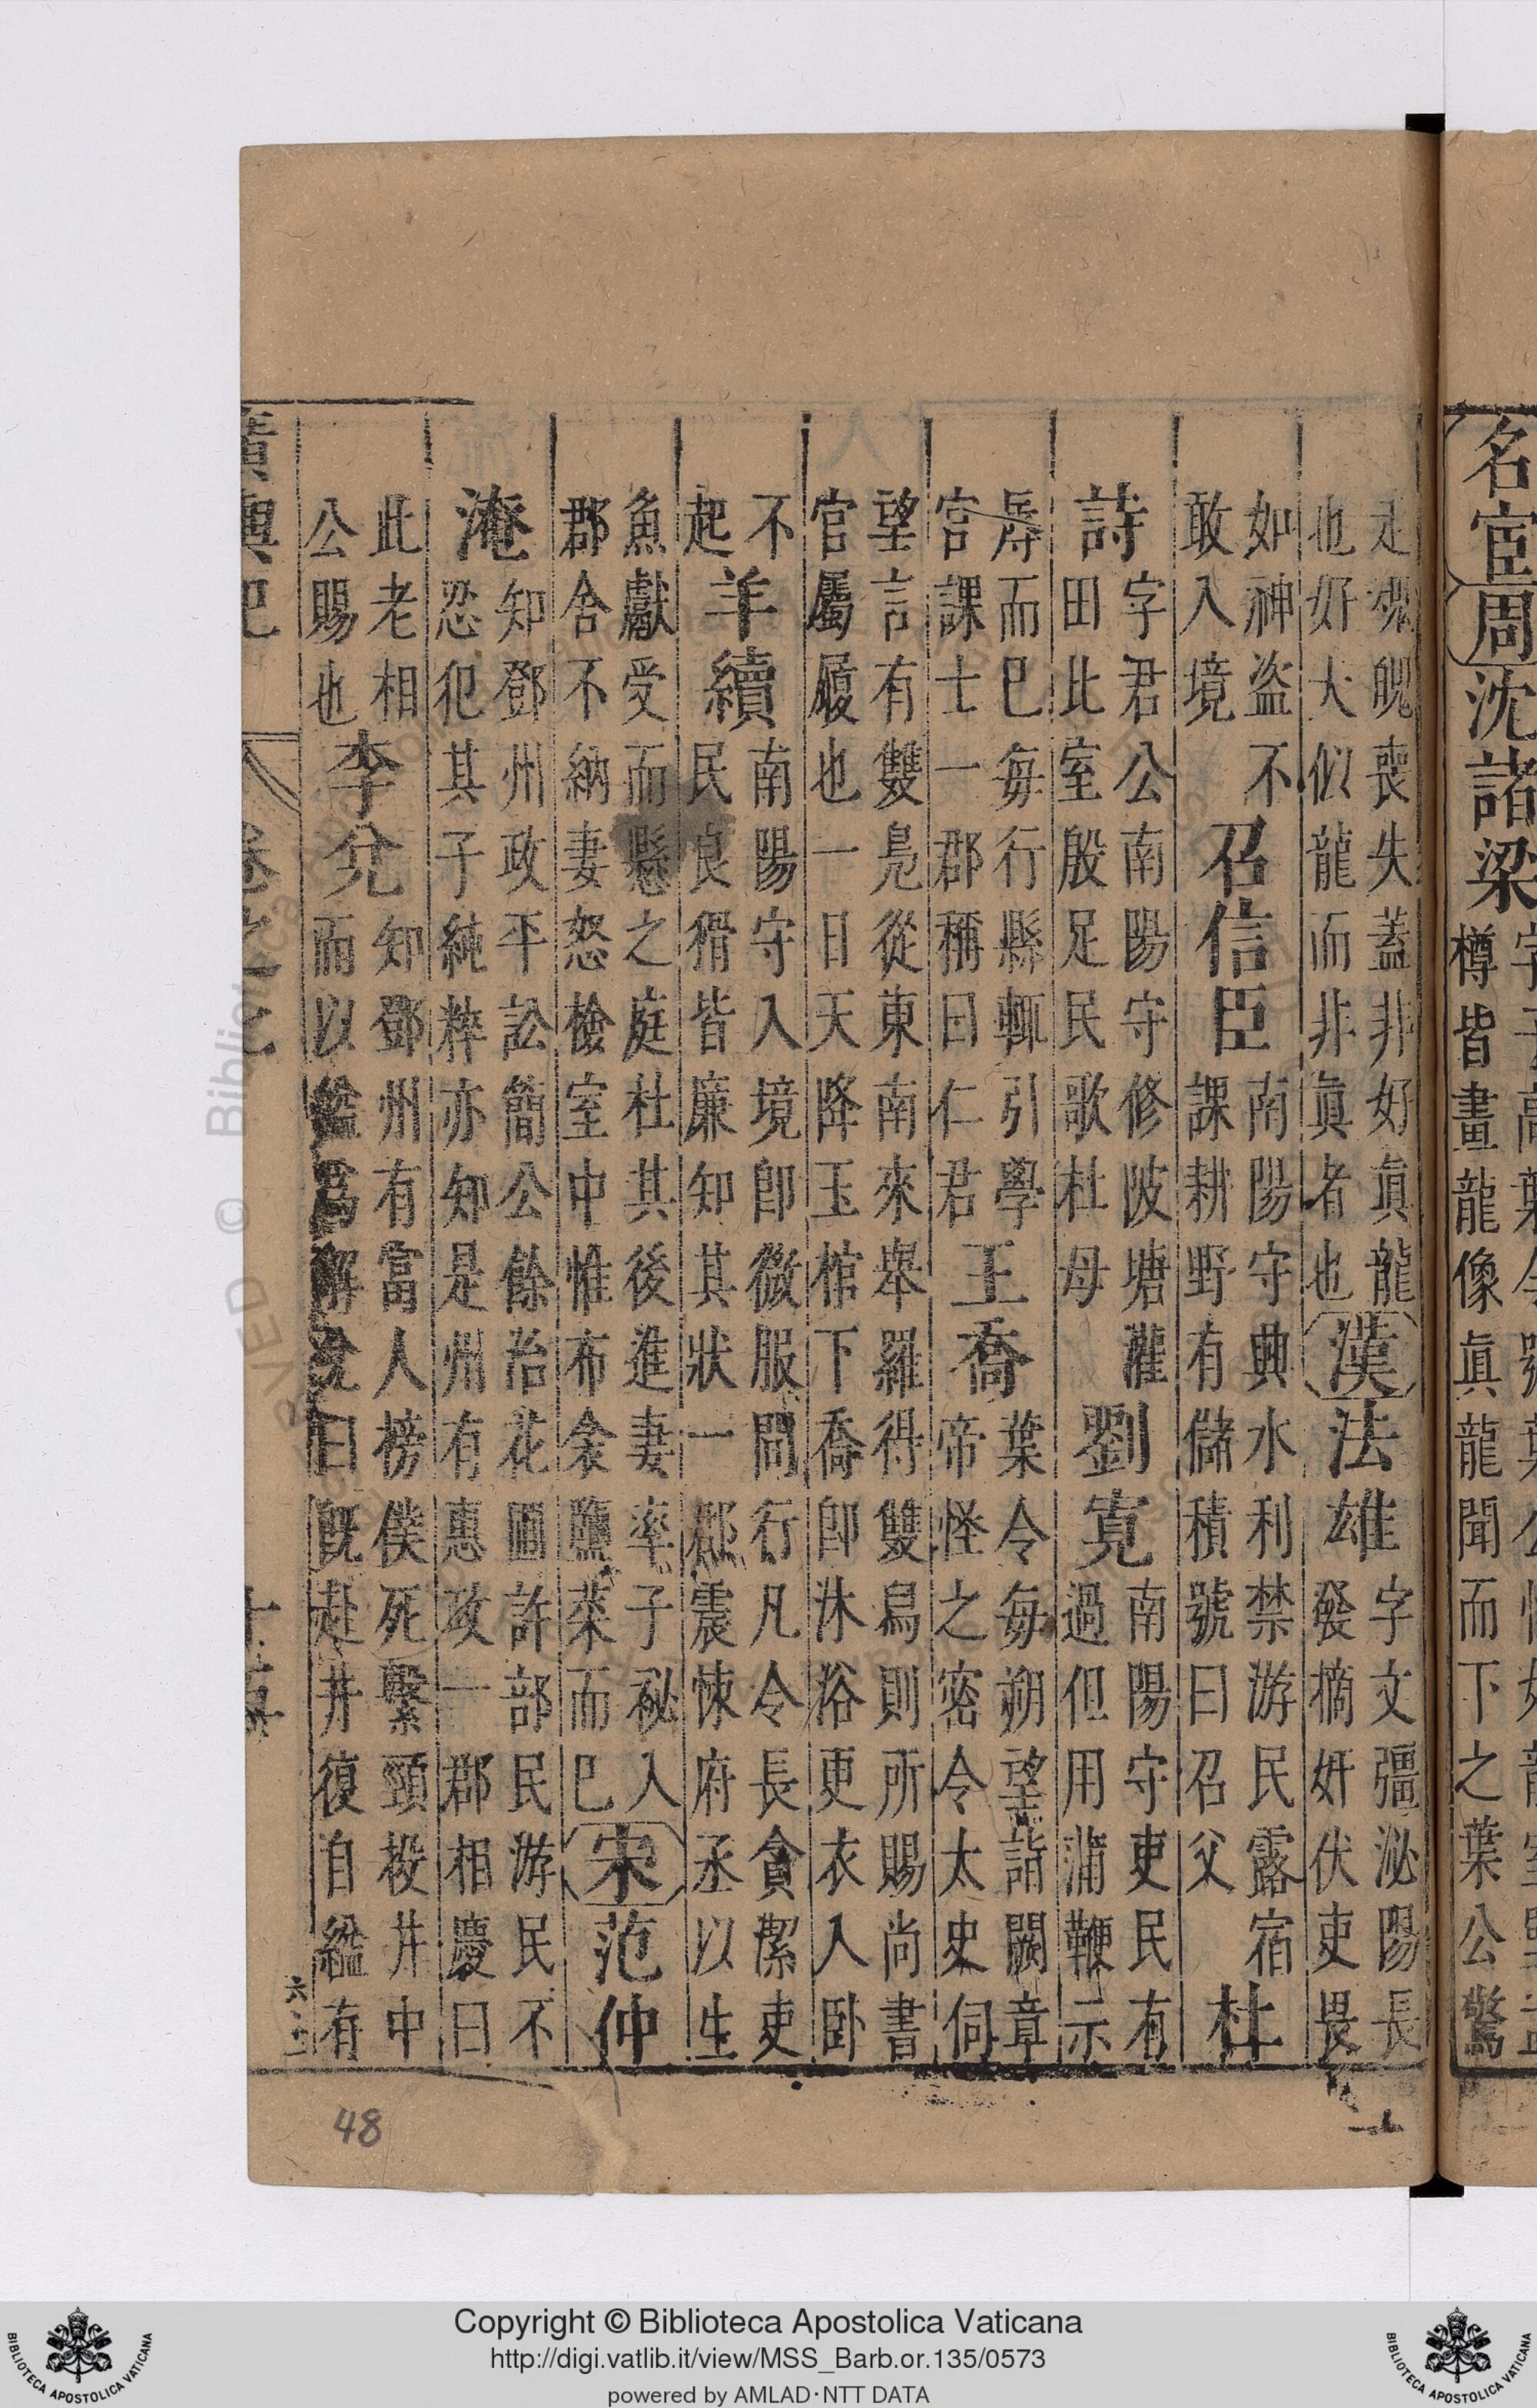 名宦周沈諸梁
樽皆畫龍像眞龍聞而下之葉公驚
走魂魄喪失蓋非好眞龍
也好夫似龍而非眞者也
漢法雄
字文彊泌陽長
發摘奸伏吏畏
如神盜不
敢入境
召信臣
南陽守典水利禁游民露宿
課耕野有儲積號曰召父
杜
詩
字君公南陽守修陂塘灌
田比室殷足民歌杜母
劉寛
南陽守吏民有
過但用蒲鞭示
辱而巳每行縣輒引學
官課士一郡稱曰仁君
王喬
葉令每朔望詣闕章
帝怪之密令太史伺
望言有雙鳬從東南來舉羅得雙舄則所賜尚書
官屬履也一日天降玉棺下喬卽沐浴更衣入卧
不
起
羊續
南陽守入境卽微服問行凡令長貪潔吏
民良猾皆廉知其狀一郡震悚府丞以生
魚獻受而懸之庭杜其後進妻率子祕入
郡舍不納妻怒檢室中惟布衾鹽菜而巳
宋范仲
淹
知鄧州政平訟簡公餘治花圃許部民游民不
忍犯其子純粹亦知是州有惠政一郡相慶曰
此老相
公賜也
李兌
知鄧州有富人榜僕死繫頸投井中
而以縊爲解兌曰旣赴井復自縊有
廣輿記
48
Copyright © Biblioteca Apostolica Vaticana
http://digi.vatlib.it/view/MSS_Barb.or.135/0573
powered by AMLAD·NTT DATA